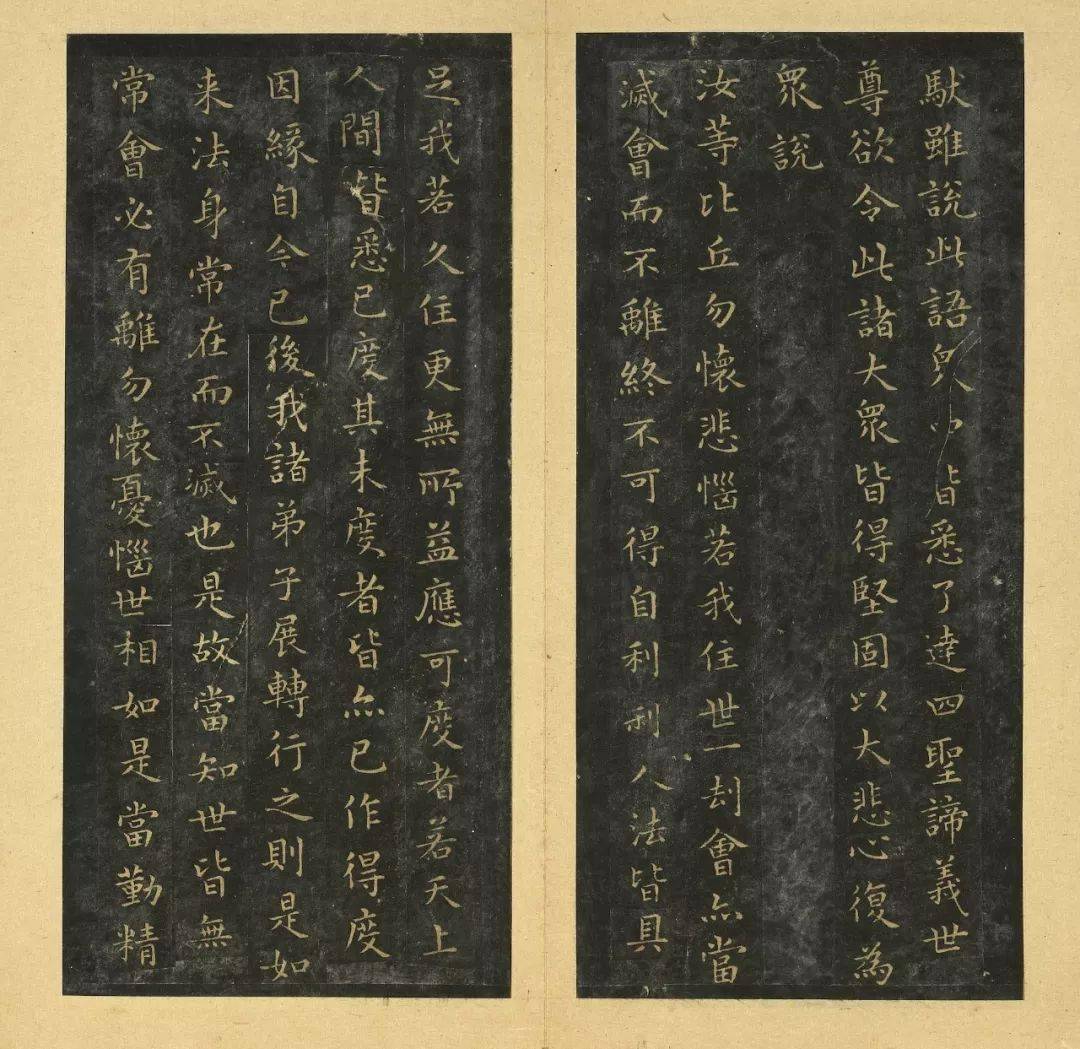 馱雖說此語眾中皆悉了達四聖諦義世
尊欲令此諸大眾皆得堅固以大悲心復為
眾說
汝等比丘勿懷悲惱若我住世一刦會亦當
滅會而不離終不可得自利利人法皆具
足我若久住更無所益應可度者若天上
人間皆悉已度其未度者皆亦已作得度
因緣自今已後我諸弟子展轉行之則是如
来法身常在而不滅也是故當知世皆無
常會必有離勿懷憂惱世相如是當勤精